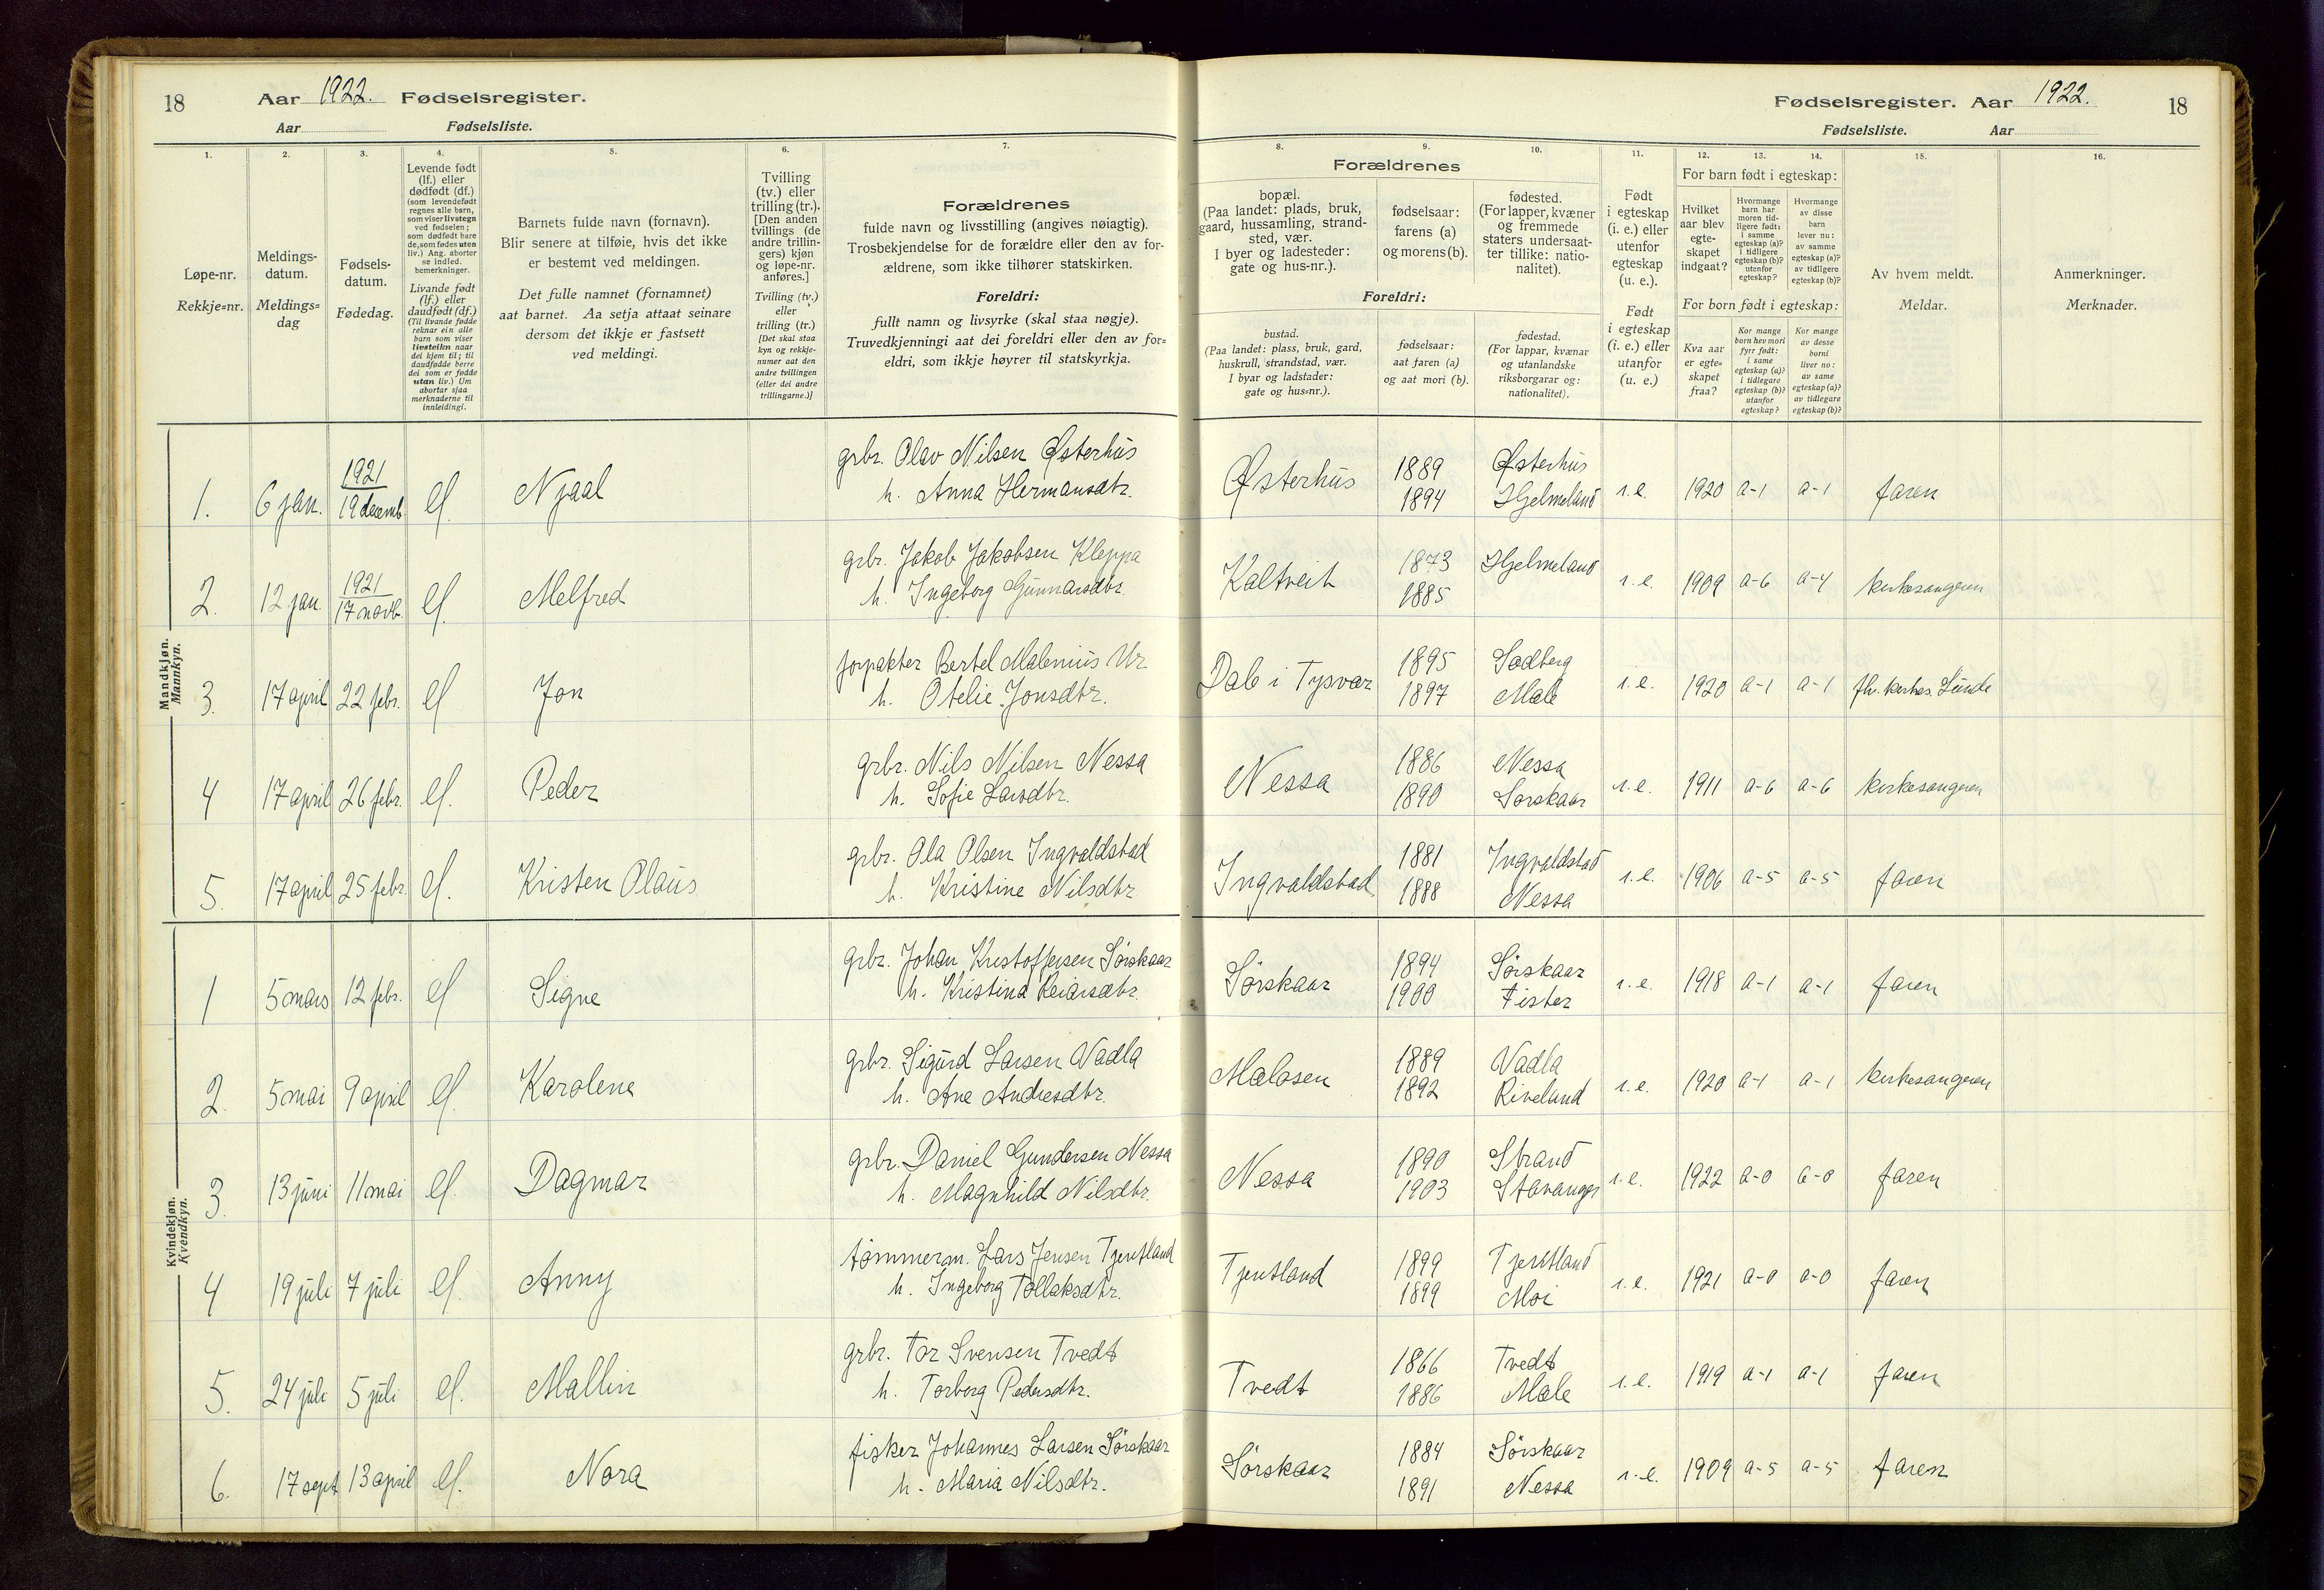 18 Aar 1922. Fødselsregister.
Aar Fødselsliste.
Fødselsregister. Aar 1922. 18
Fødselsliste. Aar
1. 2. 3. 4. 5. 6. 7. 8. 9. 10. 11. 12. 13. 14. 15. 16.
Løpe-nr.
Rekkje=nr.
Meldings-
datum.
Meldings=
dag
Fødsels-
datum.
Fødedag.
Levende født
(lf.) eller
dødfødt (df.)
(som levendefødt
regnes alle barn,
som viser livstegn
ved fødselen;
som dødfødt bare
de, som fødes uten
liv.) Ang. aborter
se indled.
bemerkninger.
Livande født
(lf.) eller
daudfødt (df.)
(Til livande fødde
reknar ein alle
barn som viser
livsteikn naar
dei kjem til; til
daudfødde berre
dei som er fødde
utan liv.) Um
abortar sjaa
merknaderne til
innleidingi.
Barnets fulde navn (fornavn).
Blir senere at tilføie, hvis det ikke
er bestemt ved meldingen.
Det fulle namnet (fornamnet)
aat barnet. Aa setja attaat seinare
dersom det ikkje er fastsett
ved meldingi.
Tvilling
(tv.) eller
trilling (tr.).
[Den anden
tvillings (de
andre trillin-
gers) kjøn
og løpe-nr.
anføres.]
Tvilling (tv.)
eller
trilling (tr.)
[Det skal staa
kyn og rekkje-
numer aat den
andre tvillingen
(eller dei andre
trillingarne.)]
Forældrenes
fulde navn og livsstilling (angives nøiagtig).
Trosbekjendelse for de forældre eller den av for-
ældrene, som ikke tilhører statskirken.
Foreldri:
fullt namn og livsyrke (skal staa nøgje).
Truvedkjenningi aat dei foreldri eller den av for=
eldri, som ikkje høyrer til statskyrkja.
Forældrenes
bopæl.
(Paa landet: plads, bruk,
gaard, hussamling, strand-
sted, vær.
I byer og ladesteder:
gate og hus-nr.).
fødselsaar:
farens (a)
og morens (b).
fødested.
(For lapper, kvæner
og fremmede
staters undersaat-
ter tillike: natio-
nalitet).
Foreldri:
bustad.
(Paa landet: plass, bruk, gard,
huskrull, strandstad, vær.
I byar og ladstader:
gate og hus=nr.).
fødselsaar:
aat faren (a)
og aat mori (b).
fødestad.
(For lappar, kvænar
og utanlandske
riksborgarar og:
nationalitet).
Født
i egteskap
(i. e.) eller
utenfor
egteskap
(u. e.).
Født
i egteskap
(i. e.) eller
utanfor
(u. e.)
For barn født i egteskap:
Hvilket
aar blev
egte-
skapet
indgaat?
Hvormange
barn har
moren tid-
ligere født:
i samme
egteskap (a)?
i tidligere
egteskap (b)?
utenfor
egteskap?
Hvormange
av disse
barn
lever nu:
av samme
egteskap (a)?
av tidligere
egteskap (b)?
For born født i egteskap:
Kva aar
er egte-
skapet
fraa?
Kor mange
born hev mori
fyrr født:
i same
egteskap (a)?
i tidlegare
egteskap (b)?
utanfor
egteskap?
Kor mange
av desse
borni
liver no:
av same
egteskap (a)?
av tidlegare
egteskap (b)?
Av hvem meldt.
Meldar.
Anmerkninger.
Merknader.
Mandkjøn.
Mannkyn.
1. 6 jan. 1921 19 decemb. lf. Njaal grbr. Olav Nilsen Østerhus
h. Anna Hermansdtr.
Østerhus 1889 1894 Østerhus Hjelmeland i.e. 1920 a-1 a-1 faren
2. 12 jan. 1921 17 novb. lf. Melfred grbr. Jakob Jakobsen Kleppa
h. Ingeborg Gunnarsdtr.
Kaltveit 1873 1885 Hjelmeland i.e. 1909 a-6 a-4 kirkesangeren
3. 17 april 22 febr. lf Jon forpakter Bertel Malenius Ur
h. Otelie Jonsdtr.
Dale i Tysvær 1895 1897 Sodberg Mæle i.e. 1920 a-1 a-1 fh. kirkes. Lunde
4 17 april 26 febr. lf. Peder grbr. Nils Nilsen Nessa
h. Sofie Larsdtr.
Nessa 1886 1890 Nessa Sørskaar i.e. 1911 a-6 a-6 kirkesangeren
5. 17 april 25 febr. lf. Kristen Olaus grbr. Ola Olsen Ingvaldstad
h. Kristine Nilsdtr.
Ingvaldstad 1881 1888 Ingvaldstad Nessa i.e. 1906 a-5 a-5 faren
Kvindekjøn.
Kvendkyn.
1 5 mars 12 febr. lf Signe grbr. Johan Kristoffersen Sørskaar
h. Kristina Reiarsdtr.
Sørskaar 1894 1900 Sørskaar Fister i.e. 1918 a-1 a-1 faren
2. 5 mai 9 april lf. Karolene grbr. Sigurd Larsen Vadla
h. Ane Andresdtr.
Mælosen 1889 1892 Vadla Riveland i.e. 1920 a-1 a-1 kirkesangeren
3. 13 juni 11 mai lf. Dagmar grbr. Daniel Gundersen Nessa
h. Magnhild Nilsdtr.
Nessa 1890 1903 Strand Stavanger i.e. 1922 a-0 6-0 faren
4 19 juli 7 juli lf. Anny tømmerm. Lars Jensen Tjentland
h. Ingeborg Tollaksdtr.
Tjentland 1899 1899 Tjentland Moi i.e. 1921 a-0 a-0 faren
5. 24 juli 5 juli lf. Mallin grbr. Tor Svensen Tvedt
h. Torborg Pedersdtr.
Tvedt 1866 1886 Tvedt Mæle i.e. 1919 a-1 a-1 faren
6. 17 sept 13 april lf. Nora fisker Johannes Larsen Sørskaar
h. Maria Nilsdtr.
Sørskaar 1884 1891 Sørskaar Nessa i.e. 1909 a-5 a-5 faren